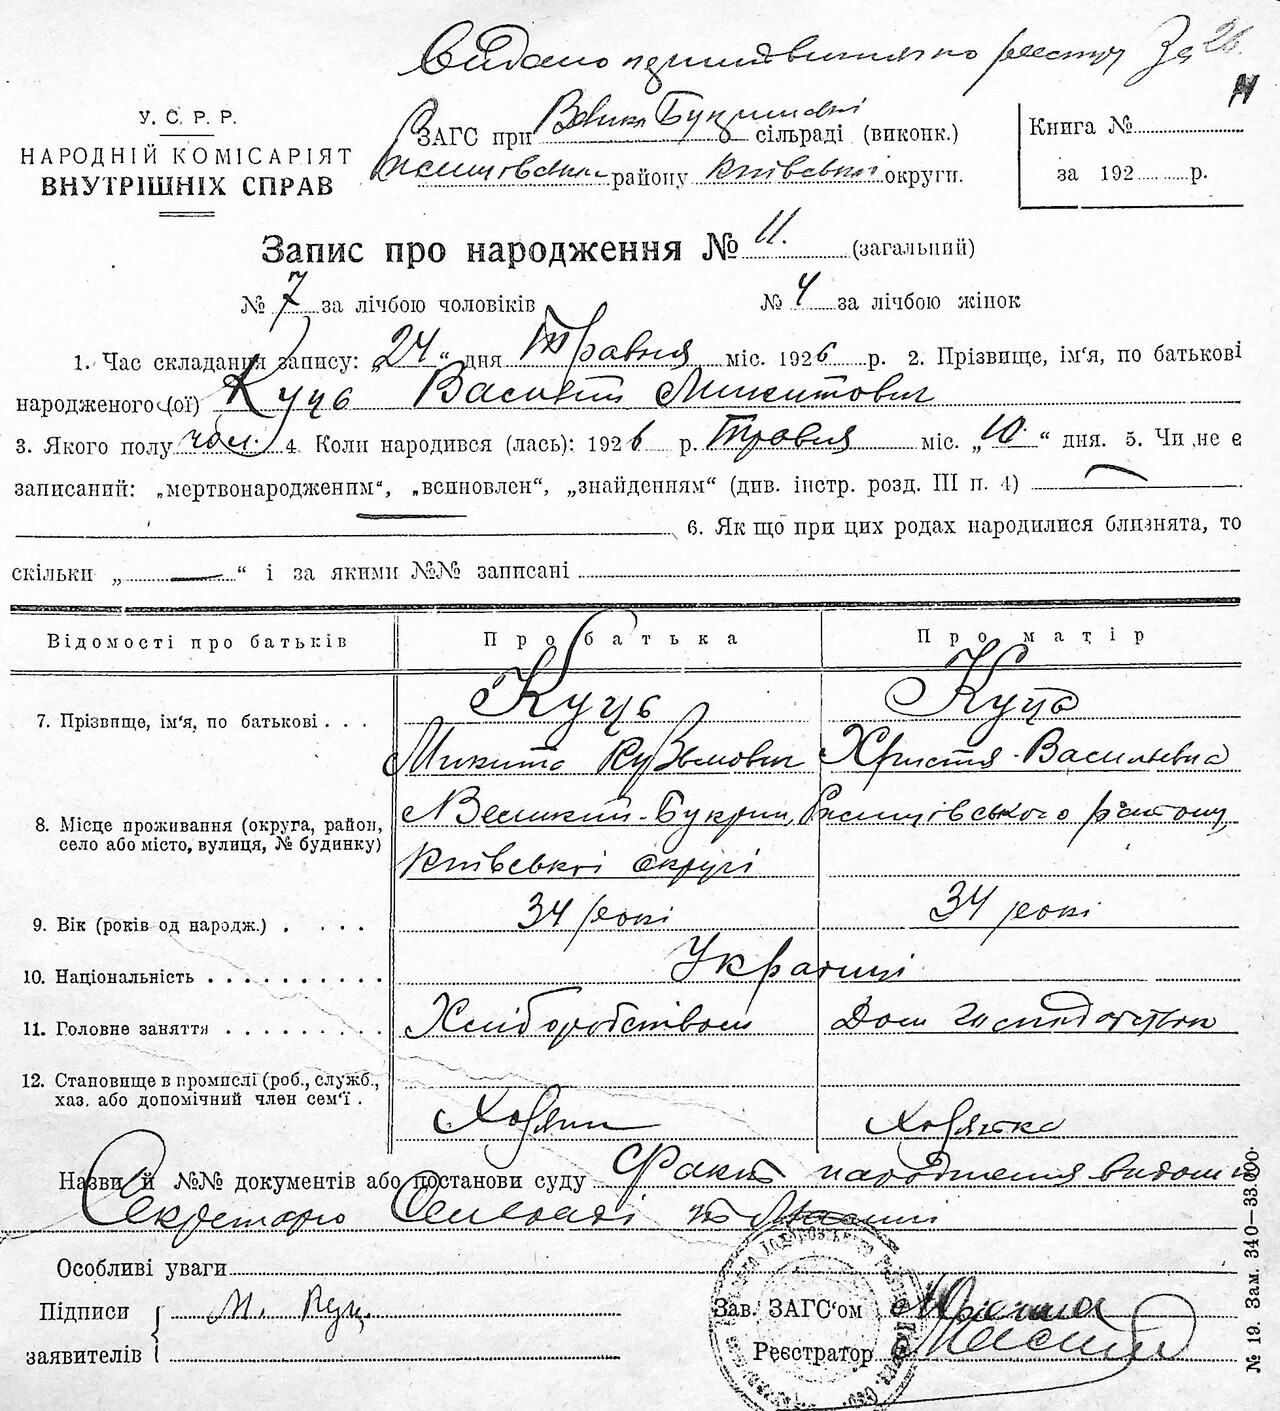 Видано
У. С. Р. Р.
НАРОДНІЙ КОМІСАРІЯТ
ВНУТРІШНІХ СПРАВ
ЗАГС при Велико Букринські сільраді (виконк.)
району Київської округи.
Книга №
за 192 р.
Запис про народження № 11. (загальний)
№ 7 за лічбою чоловіків № 4 за лічбою жінок
1. Час складання запису: „24“ дня Травня міс. 1926 р. 2. Прізвище, ім'я, по батькові
народженого (ої) Куць Василь Микитович
3. Якого полу чол. 4. Коли народився (лась): 1926 р. Травня міс. „10“ дня. 5. Чи не є
записаний: „мертвонародженим“, „всиновлен“, „знайденням“ (див. інстр. розд. III п. 4) —
— 6. Як що при цих родах народилися близнята, то
скільки „ — “ і за якими №№ записані
Відомості про батьків Про батька Про матір
7. Прізвище, ім'я, по батькові . . . Куць Куць
Микита Кузьмович Христя Васильевна
8. Місце проживання (округа, район, село або місто, вулиця, № будинку) Великий-Букрин, району,
Київської округі
9. Вік (років од народж.) . . . . 34 рокі 34 рокі
10. Національність . . . . . . . . . . Украінці
11. Головне заняття . . . . . . . . . Хліборобством Дом господарством
12. Становище в промислі (роб., служб.,
хаз. або допомічний член сем'ї . Хозяин Хозяйка
Назви й №№ документів або постанови суду Факт народження видом
Секретарю Сельради
Особливі уваги
Підписи М. Куц.
заявителів
Зав. ЗАГС'ом
Реєстратор
№ 19. Зам. 340—33.000.